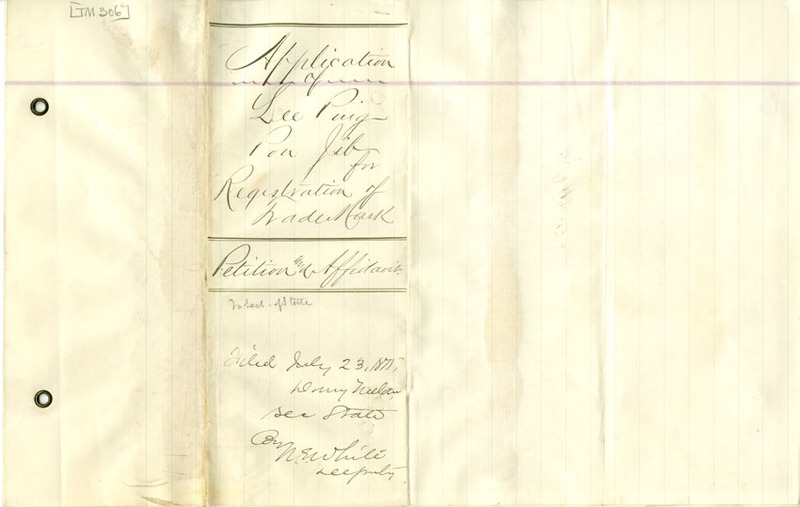 [TM 306]
Application
Lee Ping
Pon Jib
for
Registration of
Trade Mark
Petition and Affidavit
To Sect. of State
Filed July 23, 187
Sec State
By
White
Deputy